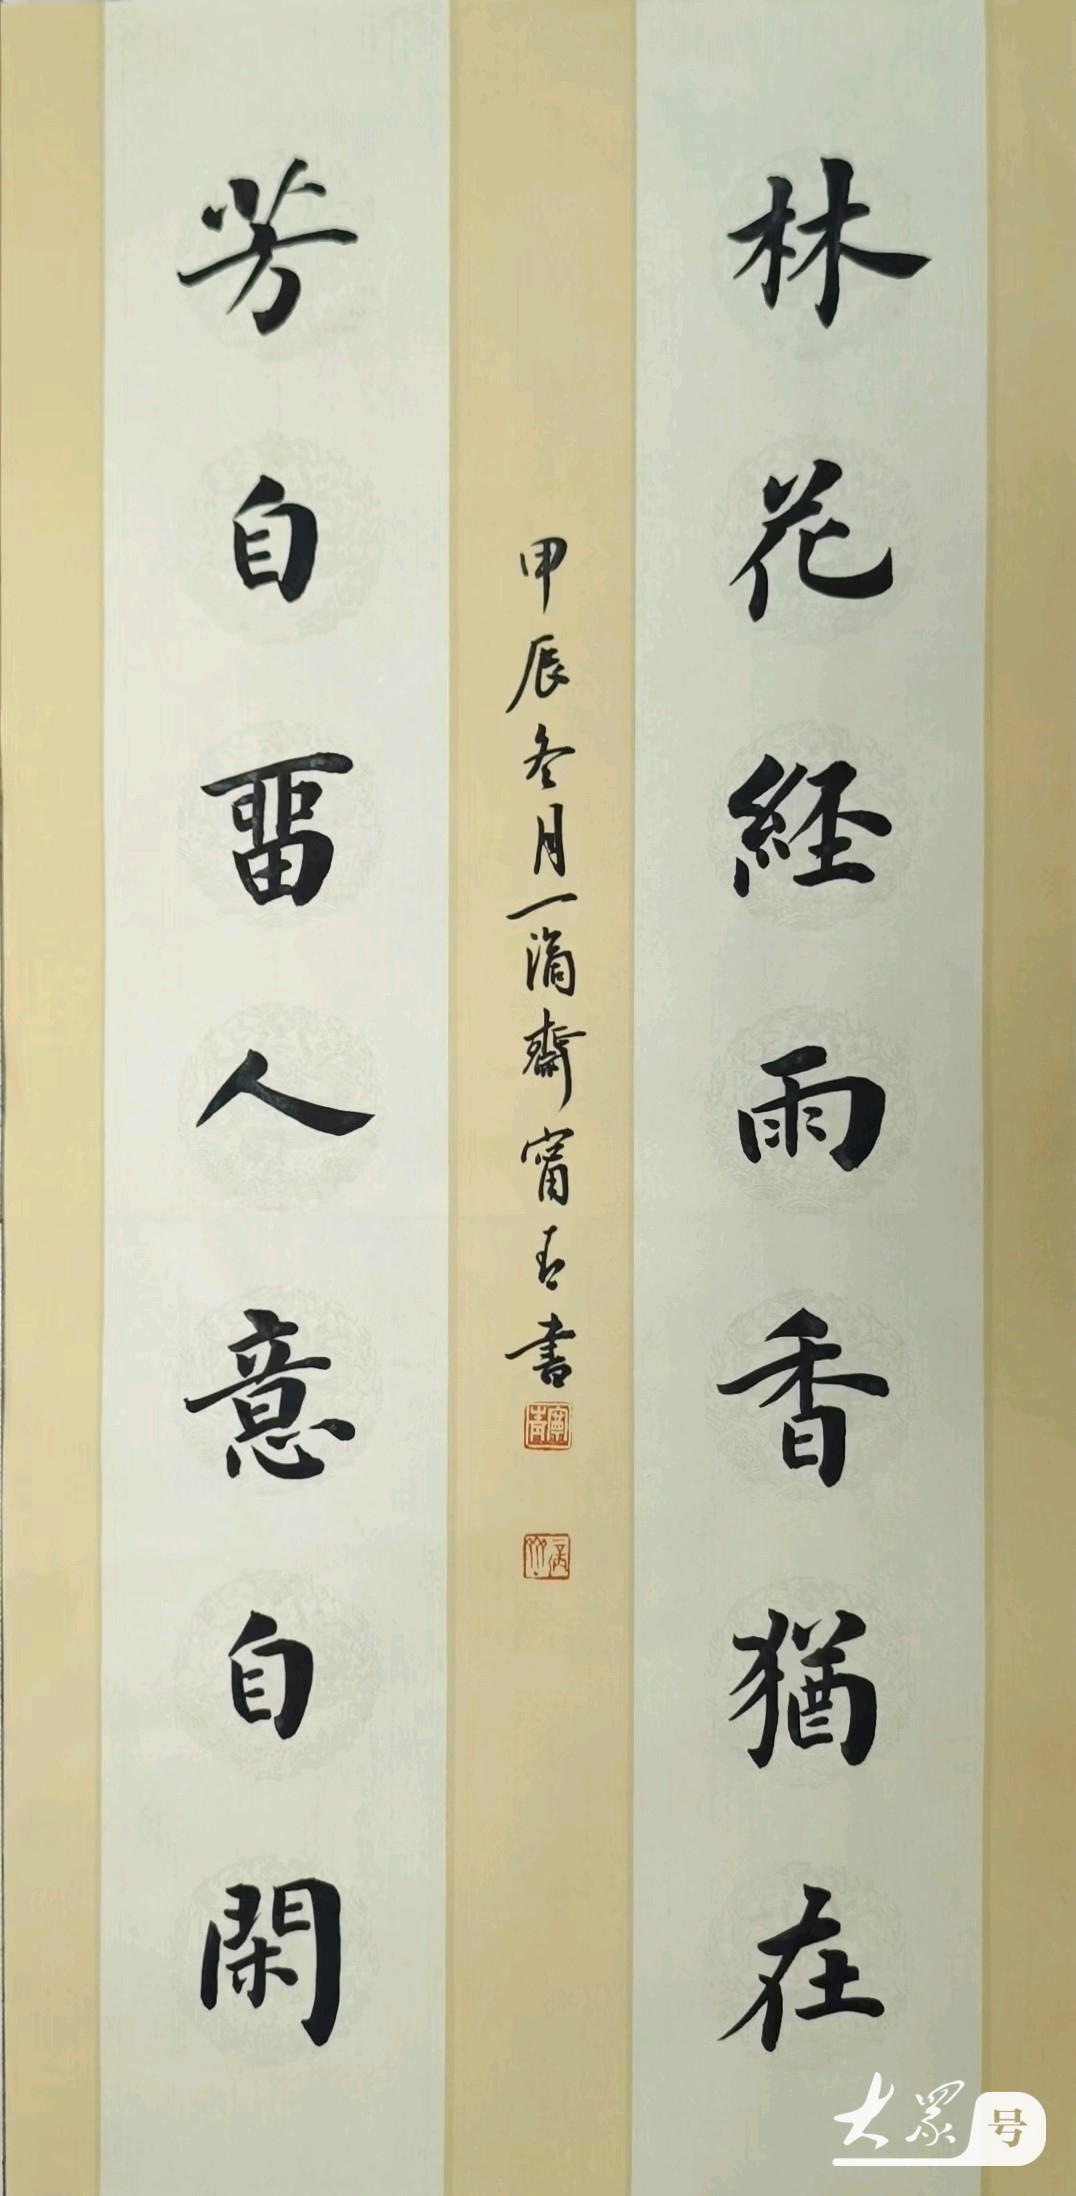 林花経雨香猶在
芳自畱人意自閑
甲辰冬月一滴齋甯青書
大眾号